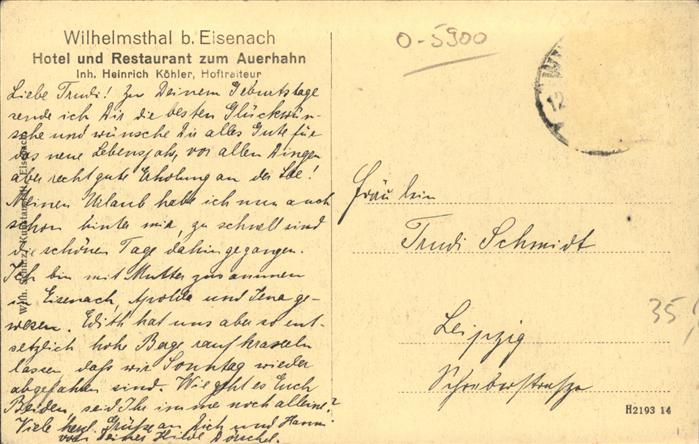 Wilhelmsthal b. Eisenach
Hotel und Restaurant zum Auerhahn
Inh. Heinrich Köhler, Hoftraiteur
Liebe Trudi! Zu Deinem Geburtstage
sende ich Dir die besten Glückwün-
sche und wünsche Dir alles Gute für
das neue Lebensjahr, vor allen Dingen
aber recht gute Erholung an der See!
Meinen Urlaub habe ich nun auch
schon hinter mir, zu schnell sind
die schönen Tage dahin gegangen.
Ich bin mit Mutter zusammen
in Eisenach, Apolda und Jena ge-
wesen. Edith hat uns aber so ent-
setzlich hohe Berge raufkraxeln
lassen, dass wir Sonntag wieder
abgefahren sind. Wie geht es Euch
Beiden, seid Ihr immer noch alleine?
Viele herzl. Grüße an Dich und Hanni
von Deiner Hilde
O-5900
12
Fräulein
Trudi Schmidt
Leipzig
Schreberstrasse
35,
H2193 14